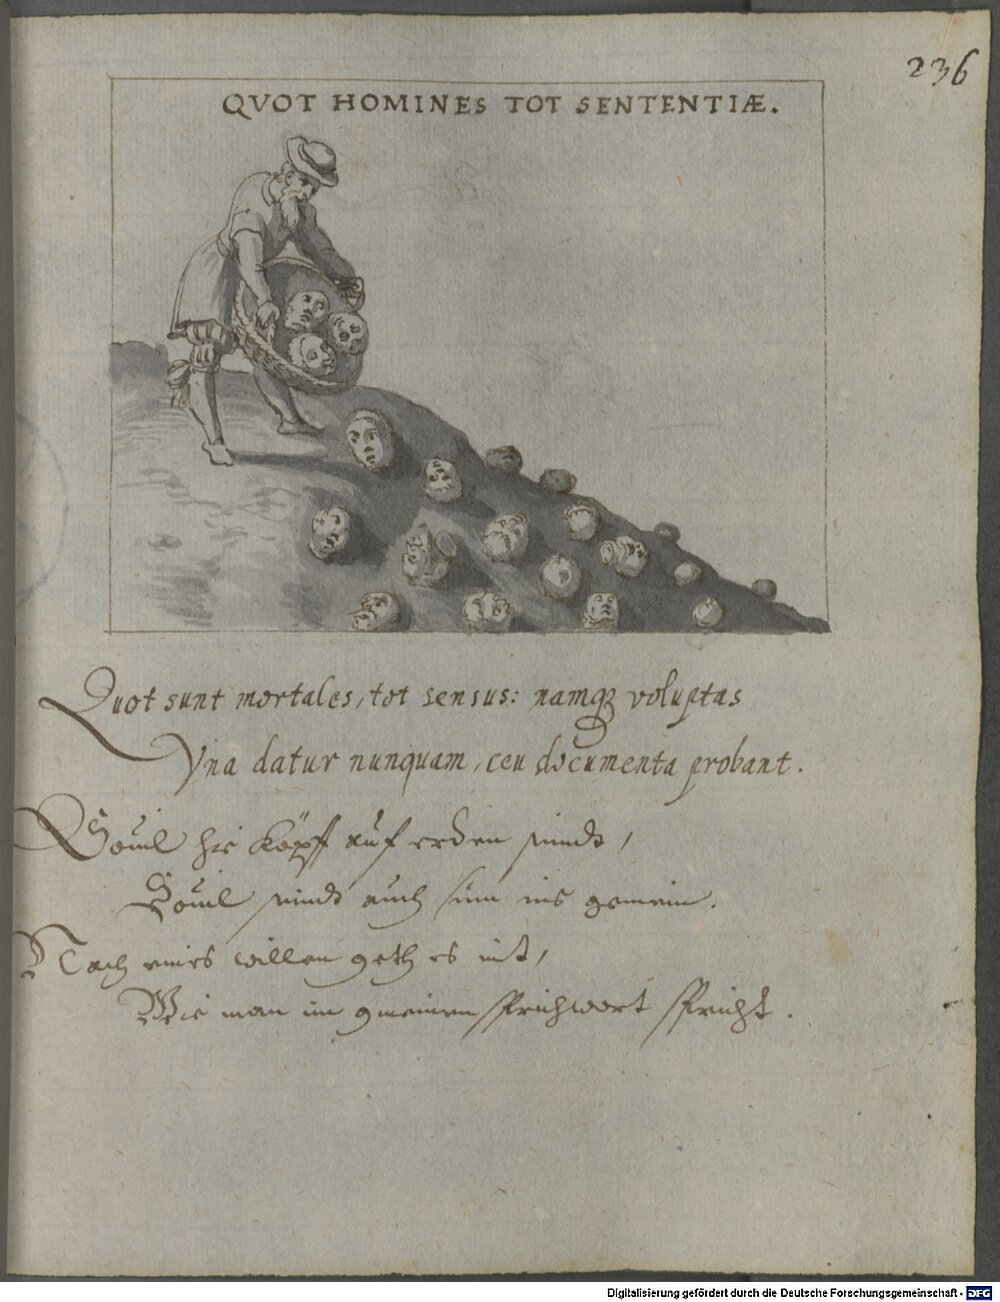 236
QVOT HOMINES TOT SENTENTIÆ.
Quot sunt mortales, tot sensus: namq; voluptas
Vna datur nunquam, ceu documenta probant.
Souil hie köpff auf erden sindt,
Souil sindt auch sinn ins gemein.
Nach eines willen geth es nit,
Wie man im gmeinen sprichwort spricht.
Digitalisierung gefördert durch die Deutsche Forschungsgemeinschaft - DFG